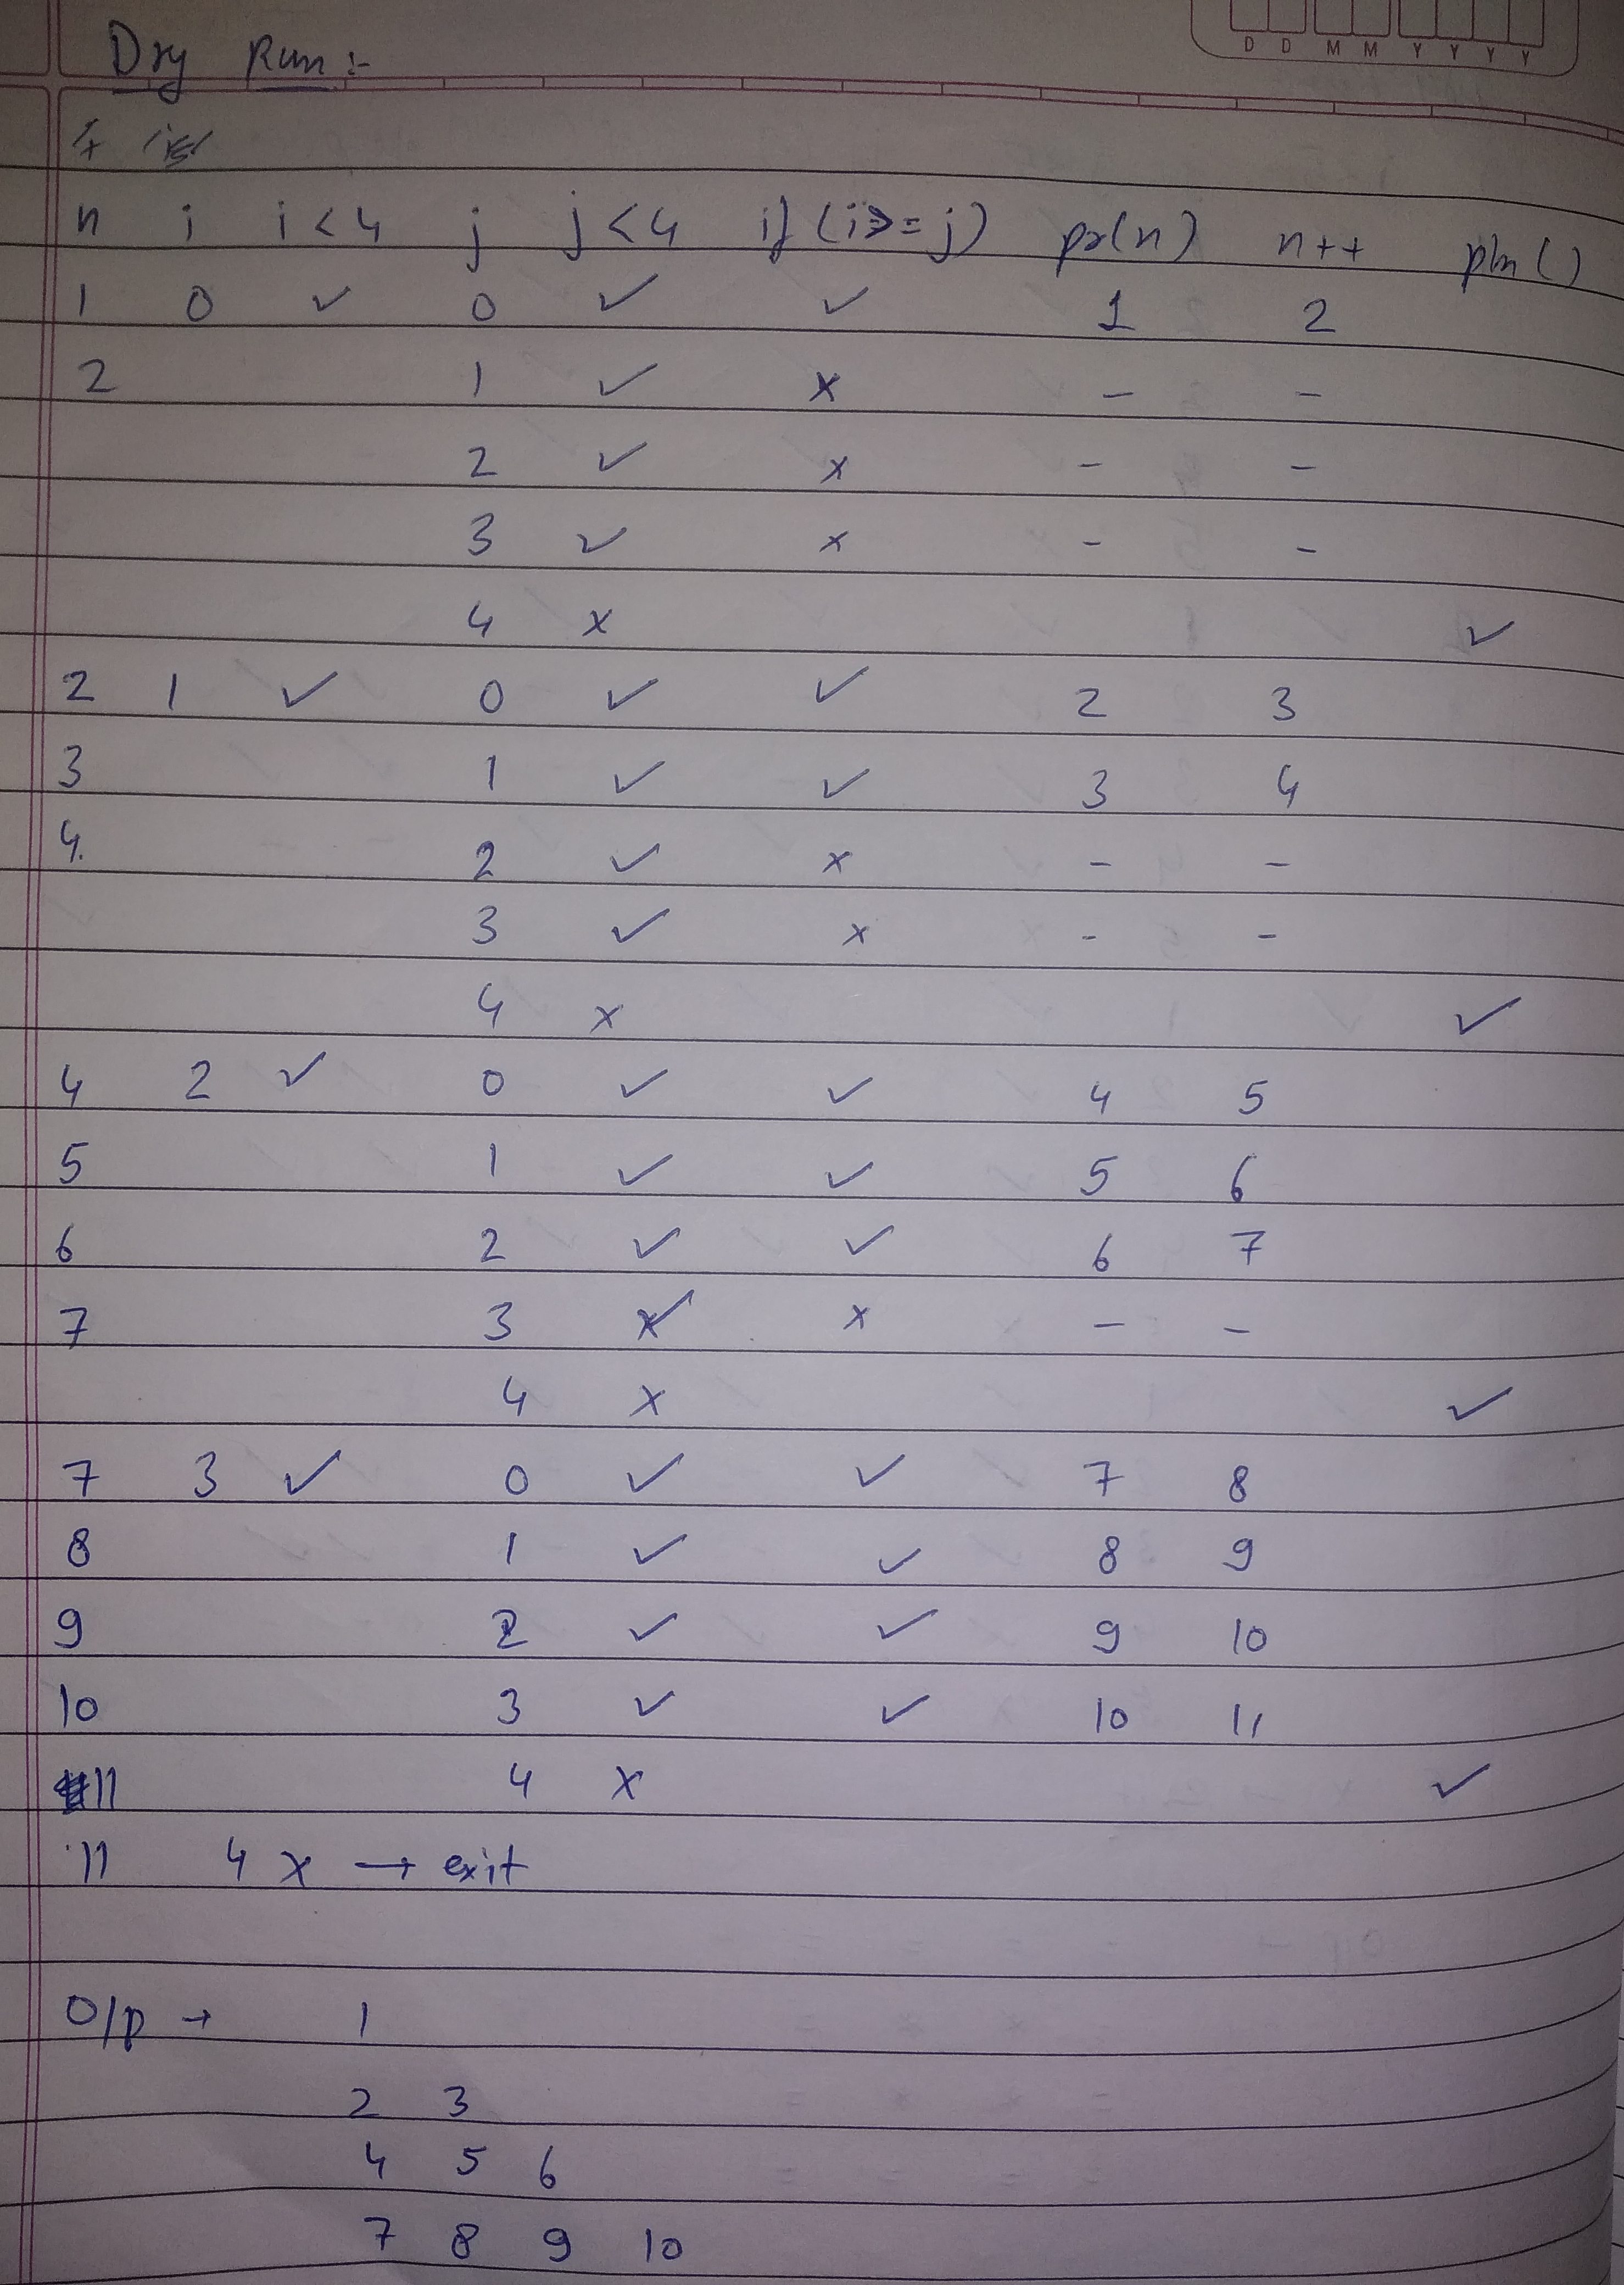 D D M M Y Y Y Y
Dry Run :-
n i i < 4 j j < 4 if (i >= j) pr(n) n++ pln ()
1 0 ✓ 0 ✓ ✓ 1 2
2 1 ✓ x - -
2 ✓ x - -
3 ✓ x - -
4 x ✓
2 1 ✓ 0 ✓ ✓ 2 3
3 1 ✓ ✓ 3 4
4. 2 ✓ x - -
3 ✓ x - -
4 x ✓
4 2 ✓ 0 ✓ ✓ 4 5
5 1 ✓ ✓ 5 6
6 2 ✓ ✓ 6 7
7 3 ✓ x - -
4 x ✓
7 3 ✓ 0 ✓ ✓ 7 8
8 1 ✓ ✓ 8 9
9 2 ✓ ✓ 9 10
10 3 ✓ ✓ 10 11
11 4 x ✓
11 4 x → exit
O/p → 1
2 3
4 5 6
7 8 9 10